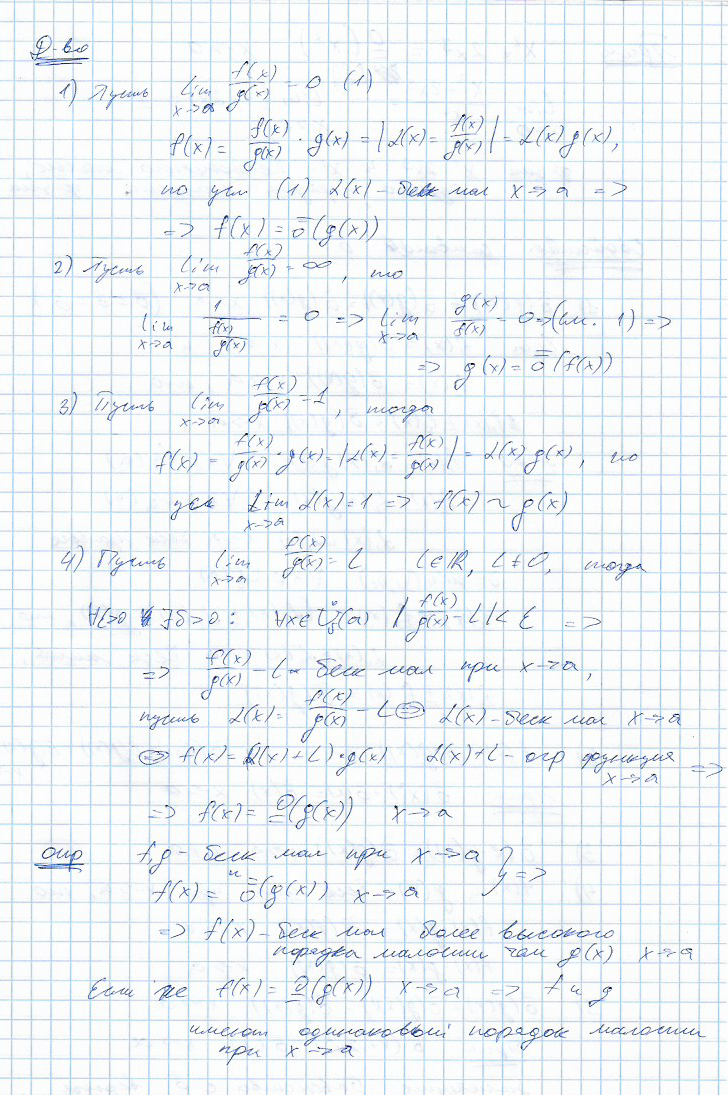 Д-во
1) Пусть lim_{x→a} f(x)/g(x) = 0 (1)
f(x) = f(x)/g(x) · g(x) = |α(x) = f(x)/g(x)| = α(x) g(x),
по усл (1) α(x) – беск мал x→a =>
=> f(x) = ō(g(x))
2) Пусть lim_{x→a} f(x)/g(x) = ∞, то
lim_{x→a} 1/(f(x)/g(x)) = 0 => lim_{x→a} g(x)/f(x) = 0 => (см. 1) =>
=> g(x) = ō(f(x))
3) Пусть lim_{x→a} f(x)/g(x) = 1, тогда
f(x) = f(x)/g(x) · g(x) = |α(x) = f(x)/g(x)| = α(x) g(x), по
усл lim_{x→a} α(x) = 1 => f(x) ~ g(x)
4) Пусть lim_{x→a} f(x)/g(x) = L L∈ℝ, L≠0, тогда
∀ε>0 ∃δ>0 : ∀x∈Ů_δ(a) |f(x)/g(x) – L| < ε =>
=> f(x)/g(x) – L – беск мал при x→a,
пусть α(x) = f(x)/g(x) – L <=> α(x) – беск мал x→a
<=> f(x) = (α(x) + L) · g(x) α(x)+L – огр функция x→a =>
=> f(x) = O(g(x)) x→a
опр f, g – беск мал при x→a } =>
и f(x) = ō(g(x)) x→a
=> f(x) – беск мал более высокого
порядка малости чем g(x) x→a
Если же f(x) = O(g(x)) x→a => f и g
имеют одинаковый порядок малости
при x→a